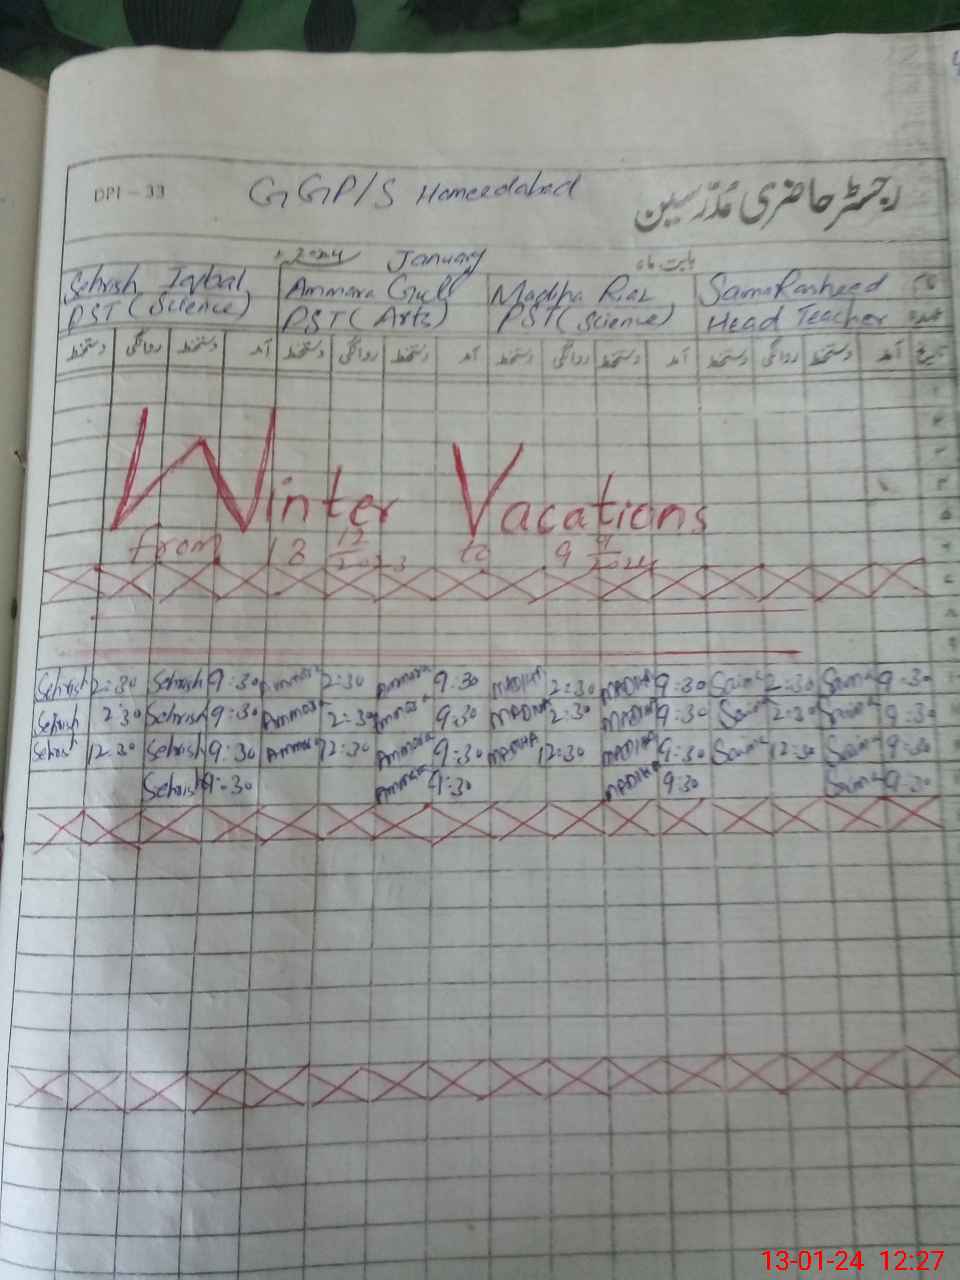 DPI - 33 GGP/S Hameedabad رجسٹر حاضری مُدرّسین
2024 January بابت ماہ
Sehrish Iqbal Ammara Gull Madiha Riaz Sama Rasheed نام
PST (Science) PST (Arts) PST (Science) Head Teacher عہدہ
دستخط روانگی دستخط آمد دستخط روانگی دستخط آمد دستخط روانگی دستخط آمد دستخط روانگی دستخط آمد تاریخ
Winter Vacations
from 18 12/2023 to 9
Sehrish 2:30 Sehrish 9:30 Ammara 2:30 Ammara 9:30 MADIHA 2:30 MADIHA 9:30 Saima 2:30 Saima 9:30
Sehrish 2:30 Sehrish 9:30 Ammara 2:30 Ammara 9:30 MADIHA 2:30 MADIHA 9:30 Saima 2:30 Saima 9:30
Sehrish 12:30 Sehrish 9:30 Ammara 12:30 Ammara 9:30 MADIHA 12:30 MADIHA 9:30 Saima 12:30 Saima 9:30
Sehrish 9:30 Ammara 9:30 MADIHA 9:30 Saima 9:30
13-01-24 12:27